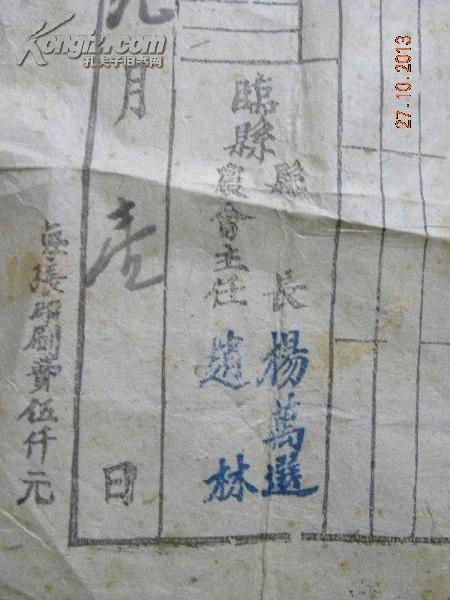 臨縣
縣長 楊萬選
農會主任 趙林
九月壹日
每張印刷費伍仟元
Kongfz.com
孔夫子旧书网
27.10.2013